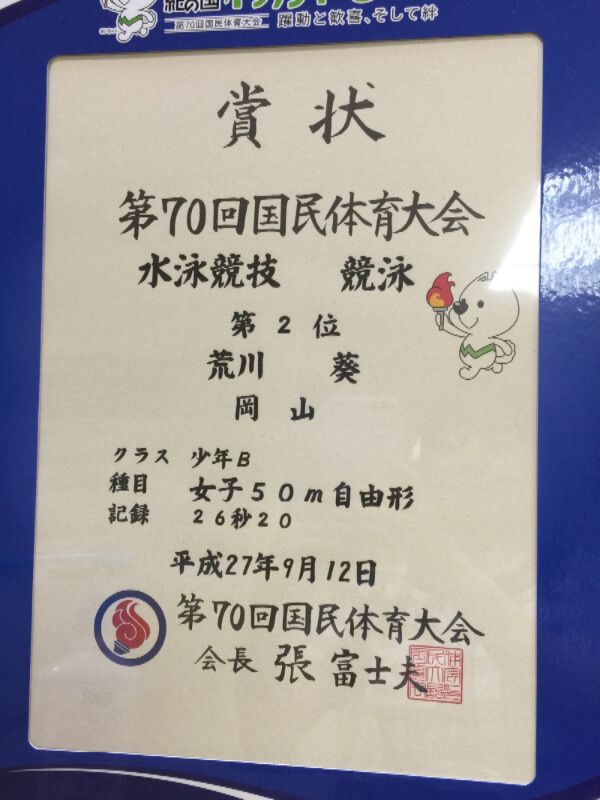 第70回国民体育大会
躍動と歓喜、そして絆
賞 状
第70回国民体育大会
水泳競技 競泳
第 2 位
荒川 葵
岡 山
クラス 少年B
種目 女子50m自由形
記録 26秒20
平成27年9月12日
第70回国民体育大会
会長 張 富士夫